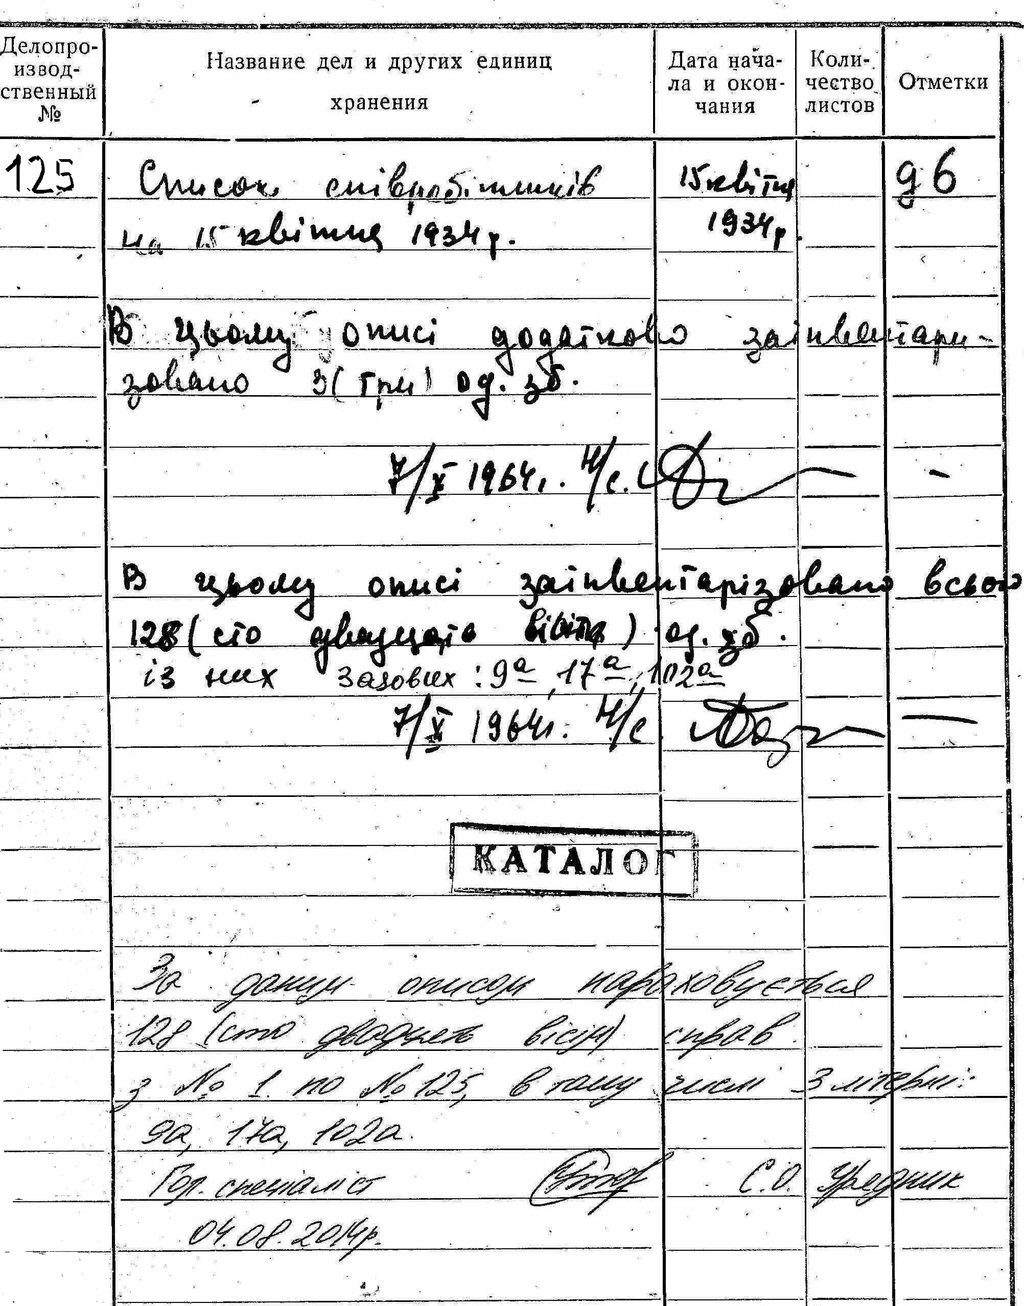 Делопро-
извод-
ственный
№
Название дел и других единиц
хранения
Дата нача-
ла и окон-
чания
Коли-
чество
листов
Отметки
125 Список співробітників 15 квітня 96
на 15 квітня 1934 р. 1934 р.
В цьому описі додатково заінвентари-
зовано 3 (три) од. зб.
7/X 1964 г. Н/с.
В цьому описі заінвентарізовано всього
128 (сто двадцять вісім) од. зб.
із них зазових: 9а, 17а, 102а
7/X 1964 г. Н/с.
КАТАЛОГ
За даним описом нараховується
128 (сто двадцять вісім) справ
з № 1 по № 125, в тому числі 3 літерні:
9а, 17а, 102а.
Гол. спеціаліст С.О. Урядник
04.08.2014р.